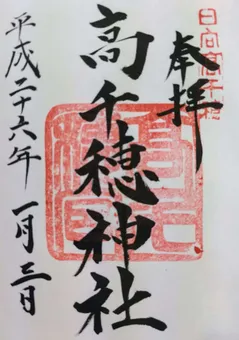 奉拝
日向国高千穂
高千穂神社
平成二十六年一月三日